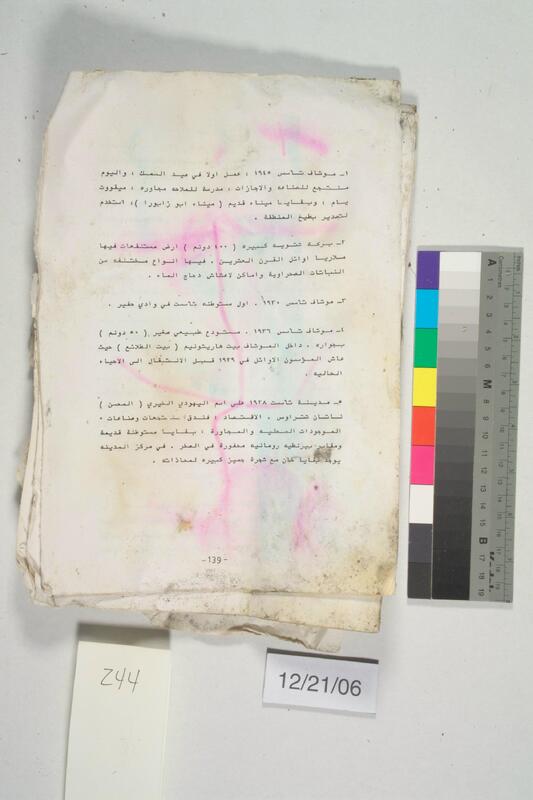 ١ـ موشاف تأسس ١٩٤٥ ؛ عمل اولا في صيد السمك ؛ واليوم
منتجع للنقاهه والاجازات ؛ مدرسة للملاحه مجاوره ؛ ميقووت
يام ؛ وبقايا ميناء قديم ( ميناء ابو زابورا )؛ استخدم
لتصدير بطيخ المنطقة .
٢ـ بركه شتويه كبيره ( ٤٠٠ دونم ) ارض مستنقعات فيها
ملاريا اوائل القرن العشرين . فيها انواع مختلفه من
النباتات الصحراوية واماكن لاعشاش دجاج الماء .
٣ـ موشاف تأسس ١٩٣٠ . اول مستوطنه تأست في وادي حفير .
٤ـ موشاف تأسس ١٩٣٦ . مستودع طبيعي صغير ( ٥٠ دونم )
بجواره . داخل الموشاف بيت هاريشونيم ( بيت الطلائع ) حيث
عاش المؤسسون الاوائل في ١٩٣٩ قبل الانتقال الى الاحياء
الحاليه .
٥ـ مدينة تأست ١٩٢٨ على اسم اليهودي الخيري ( المحسن )
ناشان شتراوس . الاقتصاد : فنادق؛ منتجعات وصناعات .
الموجودات المحليه والمجاورة : بقايا مستوطنة قديمة
ومقابر بيزنطيه رومانيه محفورة في الصخر . في مركز المدينه
يوجد بقايا خان مع شجرة جميز كبيره لمحاذاته .
-139-
244
12/21/06
A
M
B
Centimetres